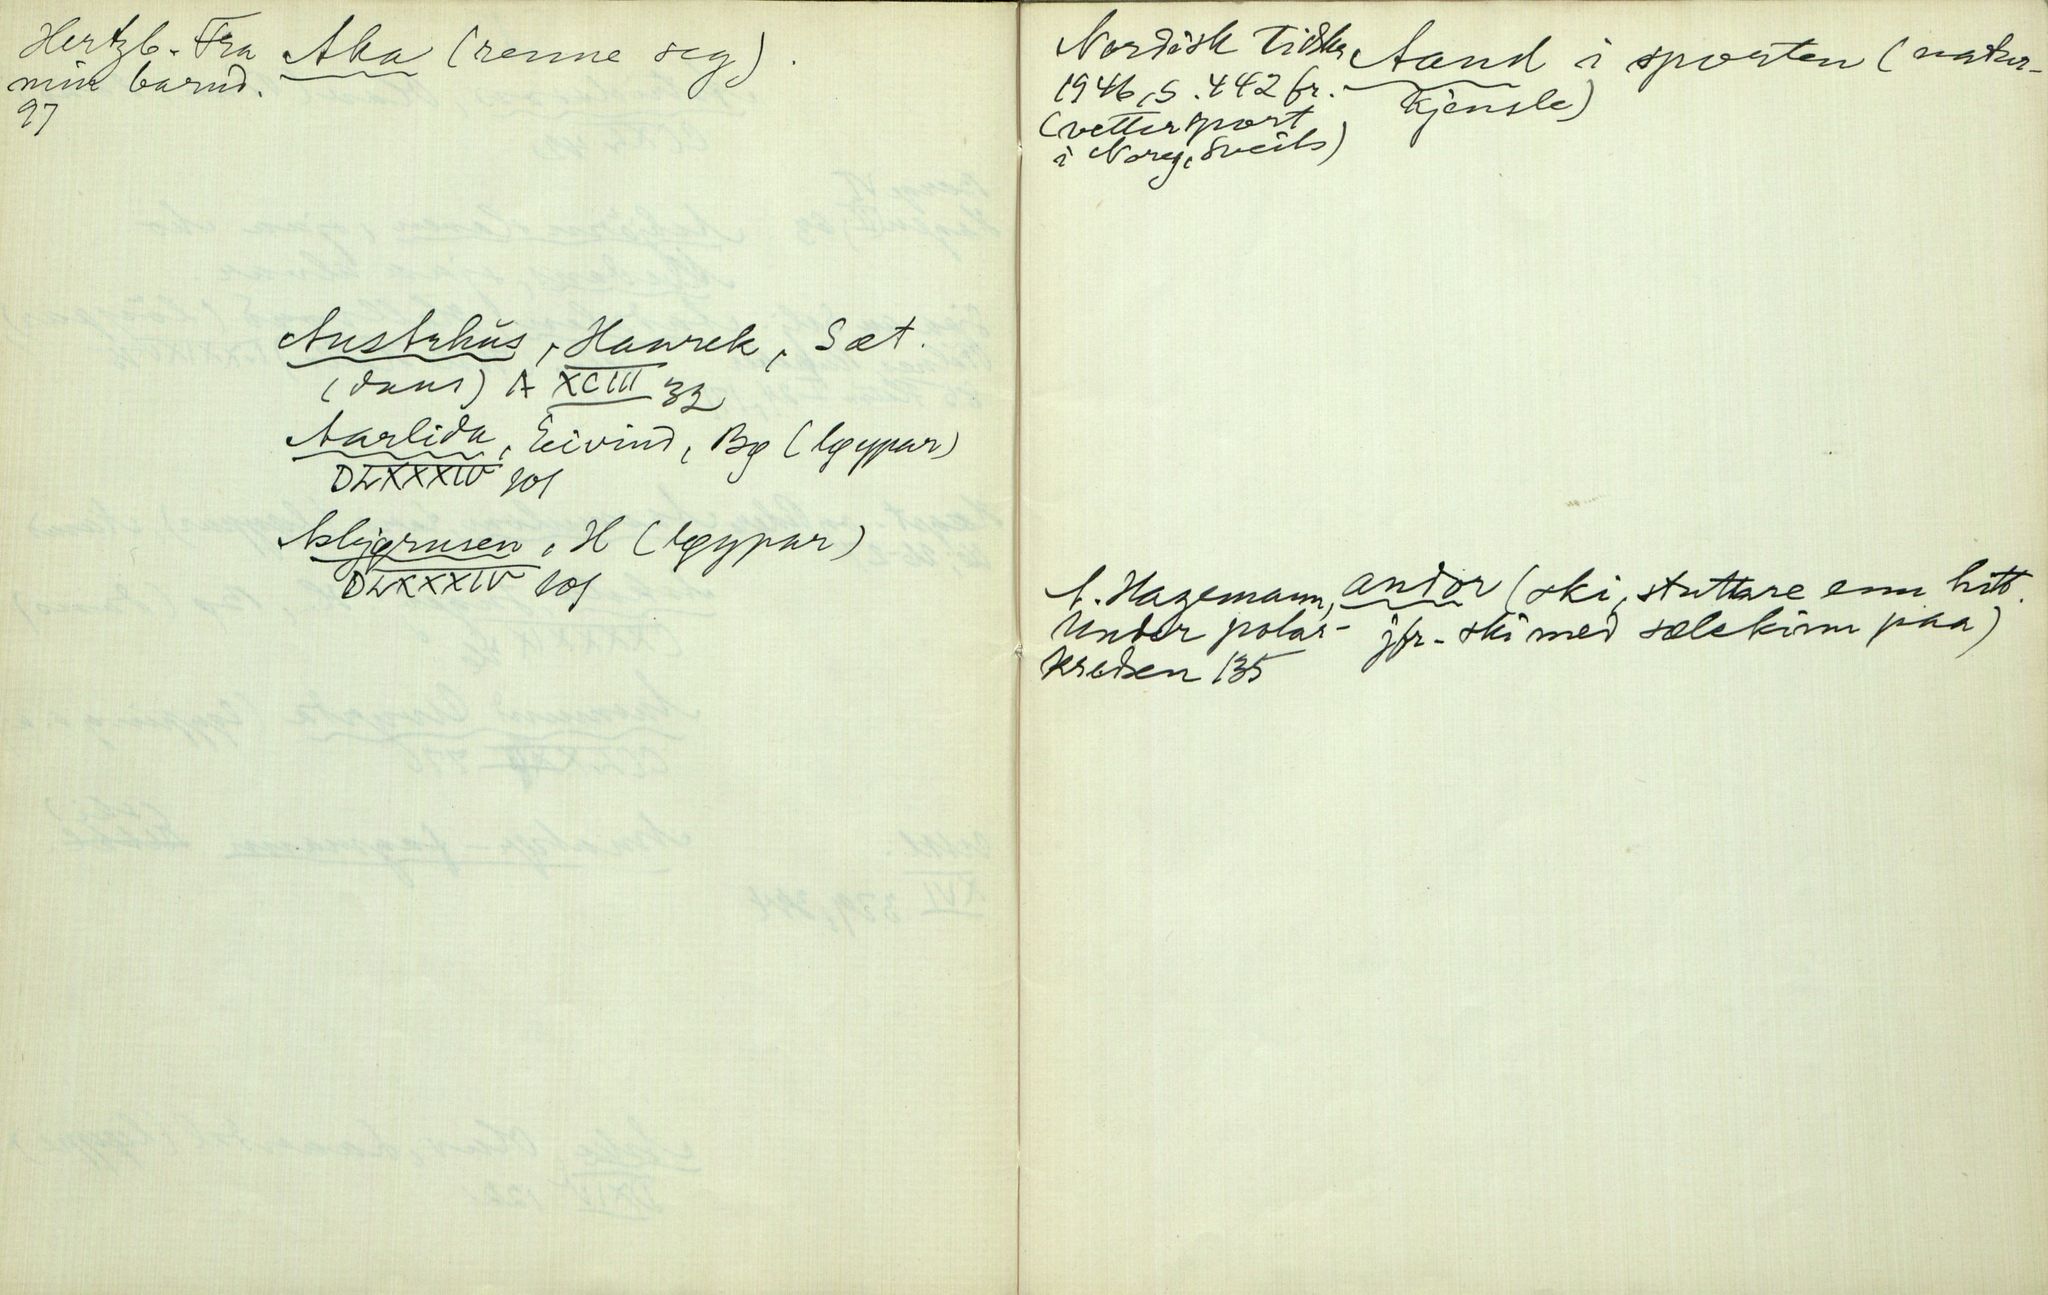 Hertzb. Fra
min barnd.
97
Aka (renne seg).
Austrhus, Hanrek, Sæt.
(dans) A XCIII 32
Aarlida, Eivind, Bg (løypar)
DLXXXIV 101
Asbjørnsen, H (løypar)
DLXXXIV 101
Nordisk Tidskr
1946, S. 442 fr.
(vettersport
i Noreg, Sveits)
Aand i sporten (natur-
kjensle)
A. Hagemann,
Under polar-
kredsen 135
andor (ski, stuttare enn hitt.
jfr. ski med sælskinn paa)